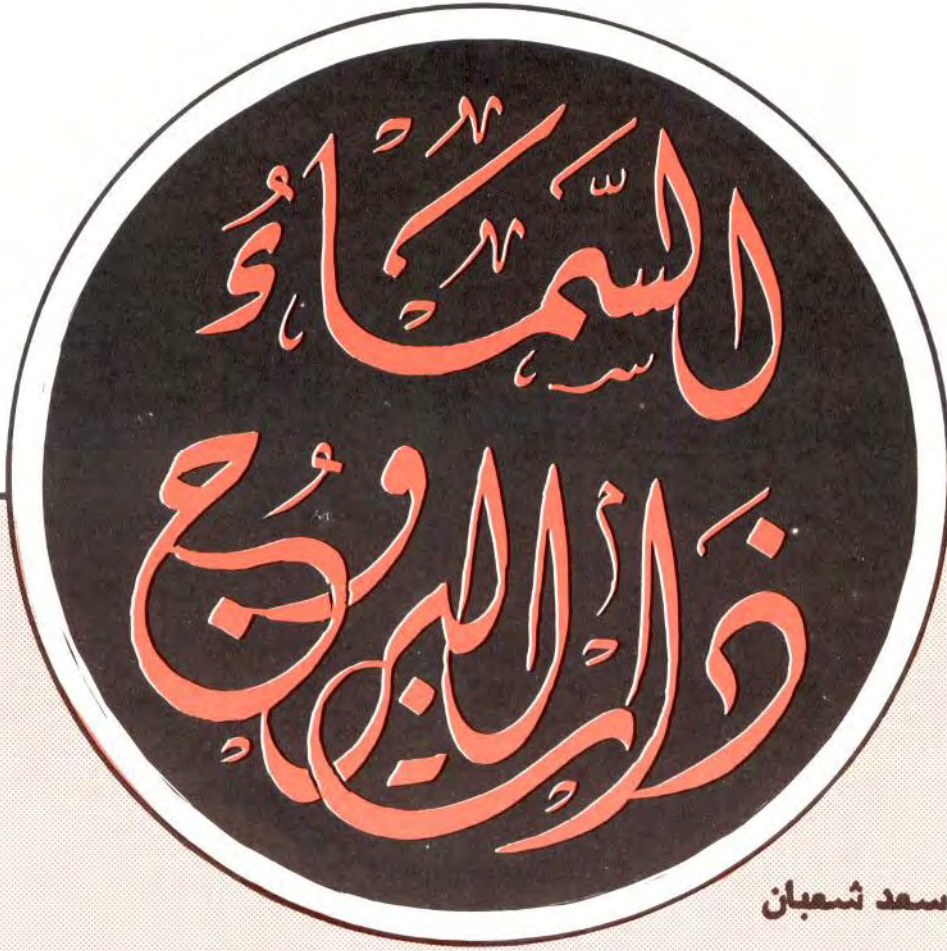 السَّمَاءُ
ذَاتِ البُرُوج
سعد شعبان